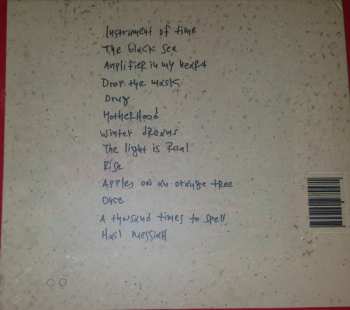 Instrument of time
The black sea
Amplifier in my heart
Drop the mask
Drug
MOTHERHOOD
winter dreams
The light is Real
Rise
Apples on an orange tree
Once
A thousand times to spell
Hail Messiah